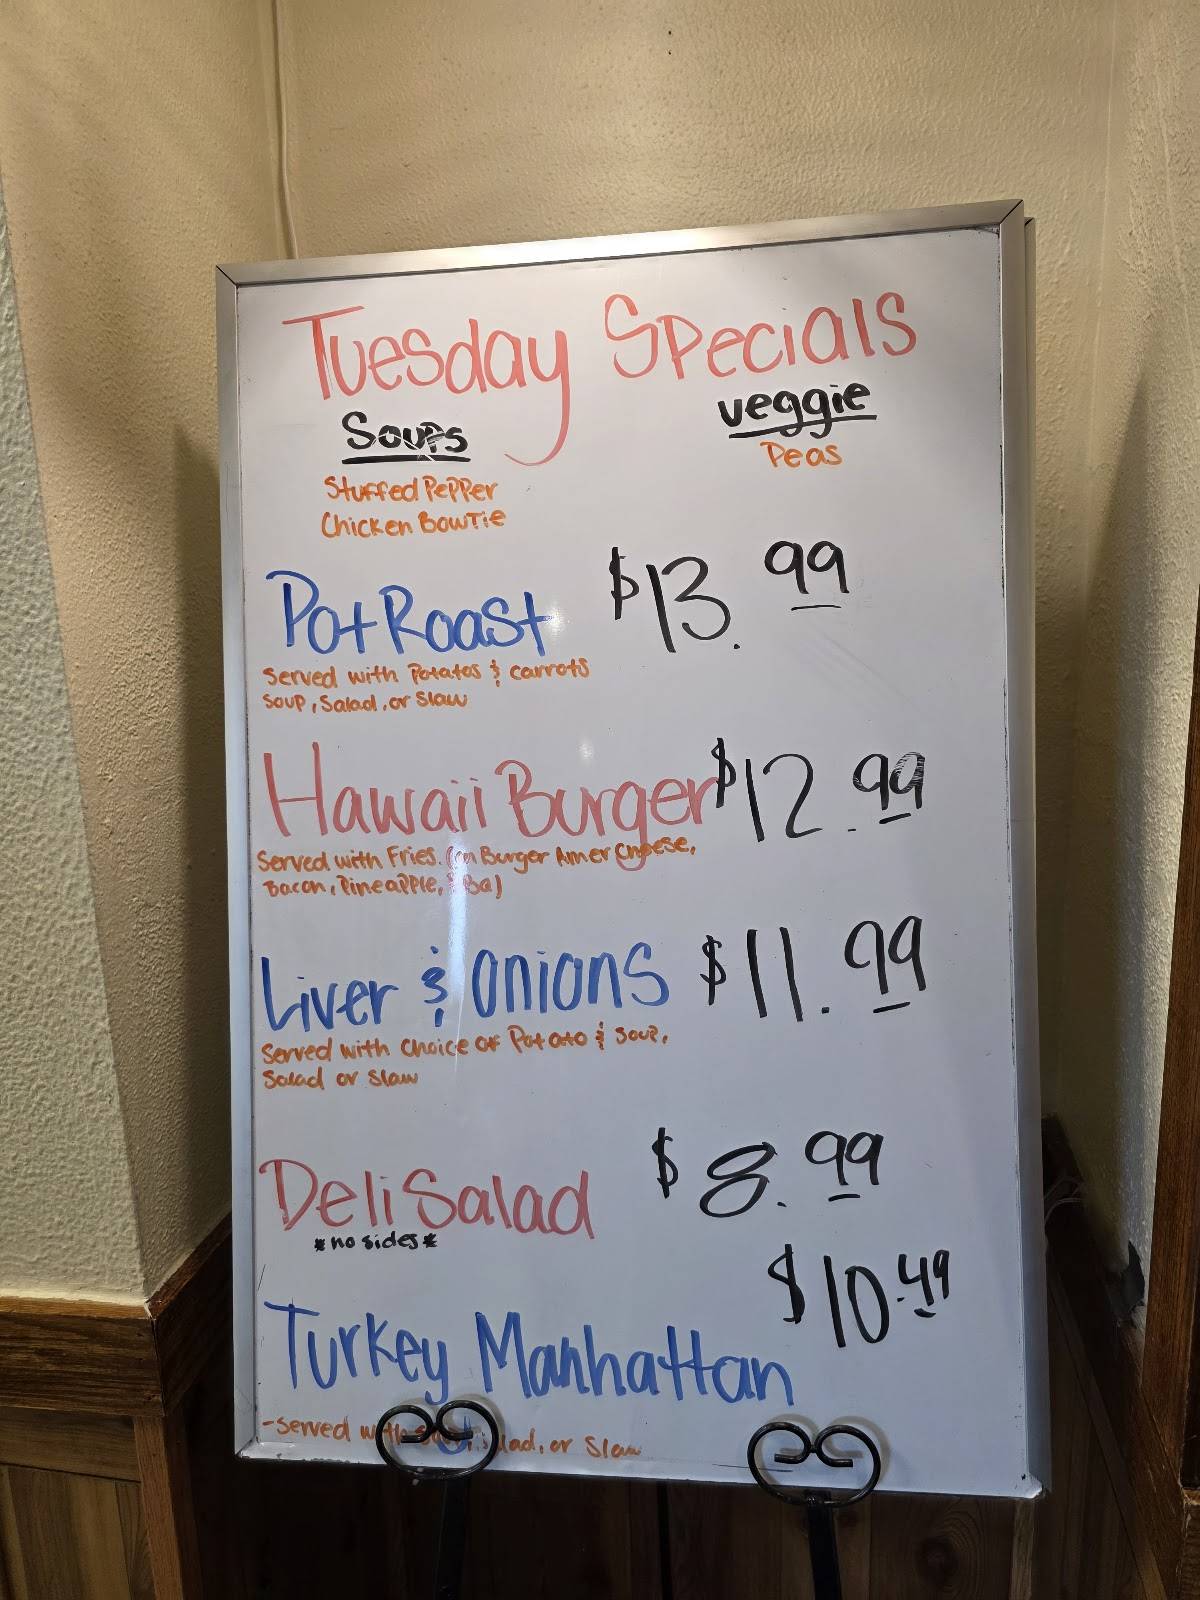 Tuesday Specials
Soups
veggie
Stuffed Pepper
Peas
Chicken Bowtie
Pot Roast $13.99
Served with Potatos & carrots
Soup, Salad, or Slaw
Hawaii Burger $12.99
Served with Fries. Burger Amer Cheese,
Bacon, Pineapple,
Liver & onions $11.99
Served with choice of Potato & Soup,
Salad or Slaw
Deli Salad $8.99
*no sides*
$10.49
Turkey Manhattan
-Served with or Slaw